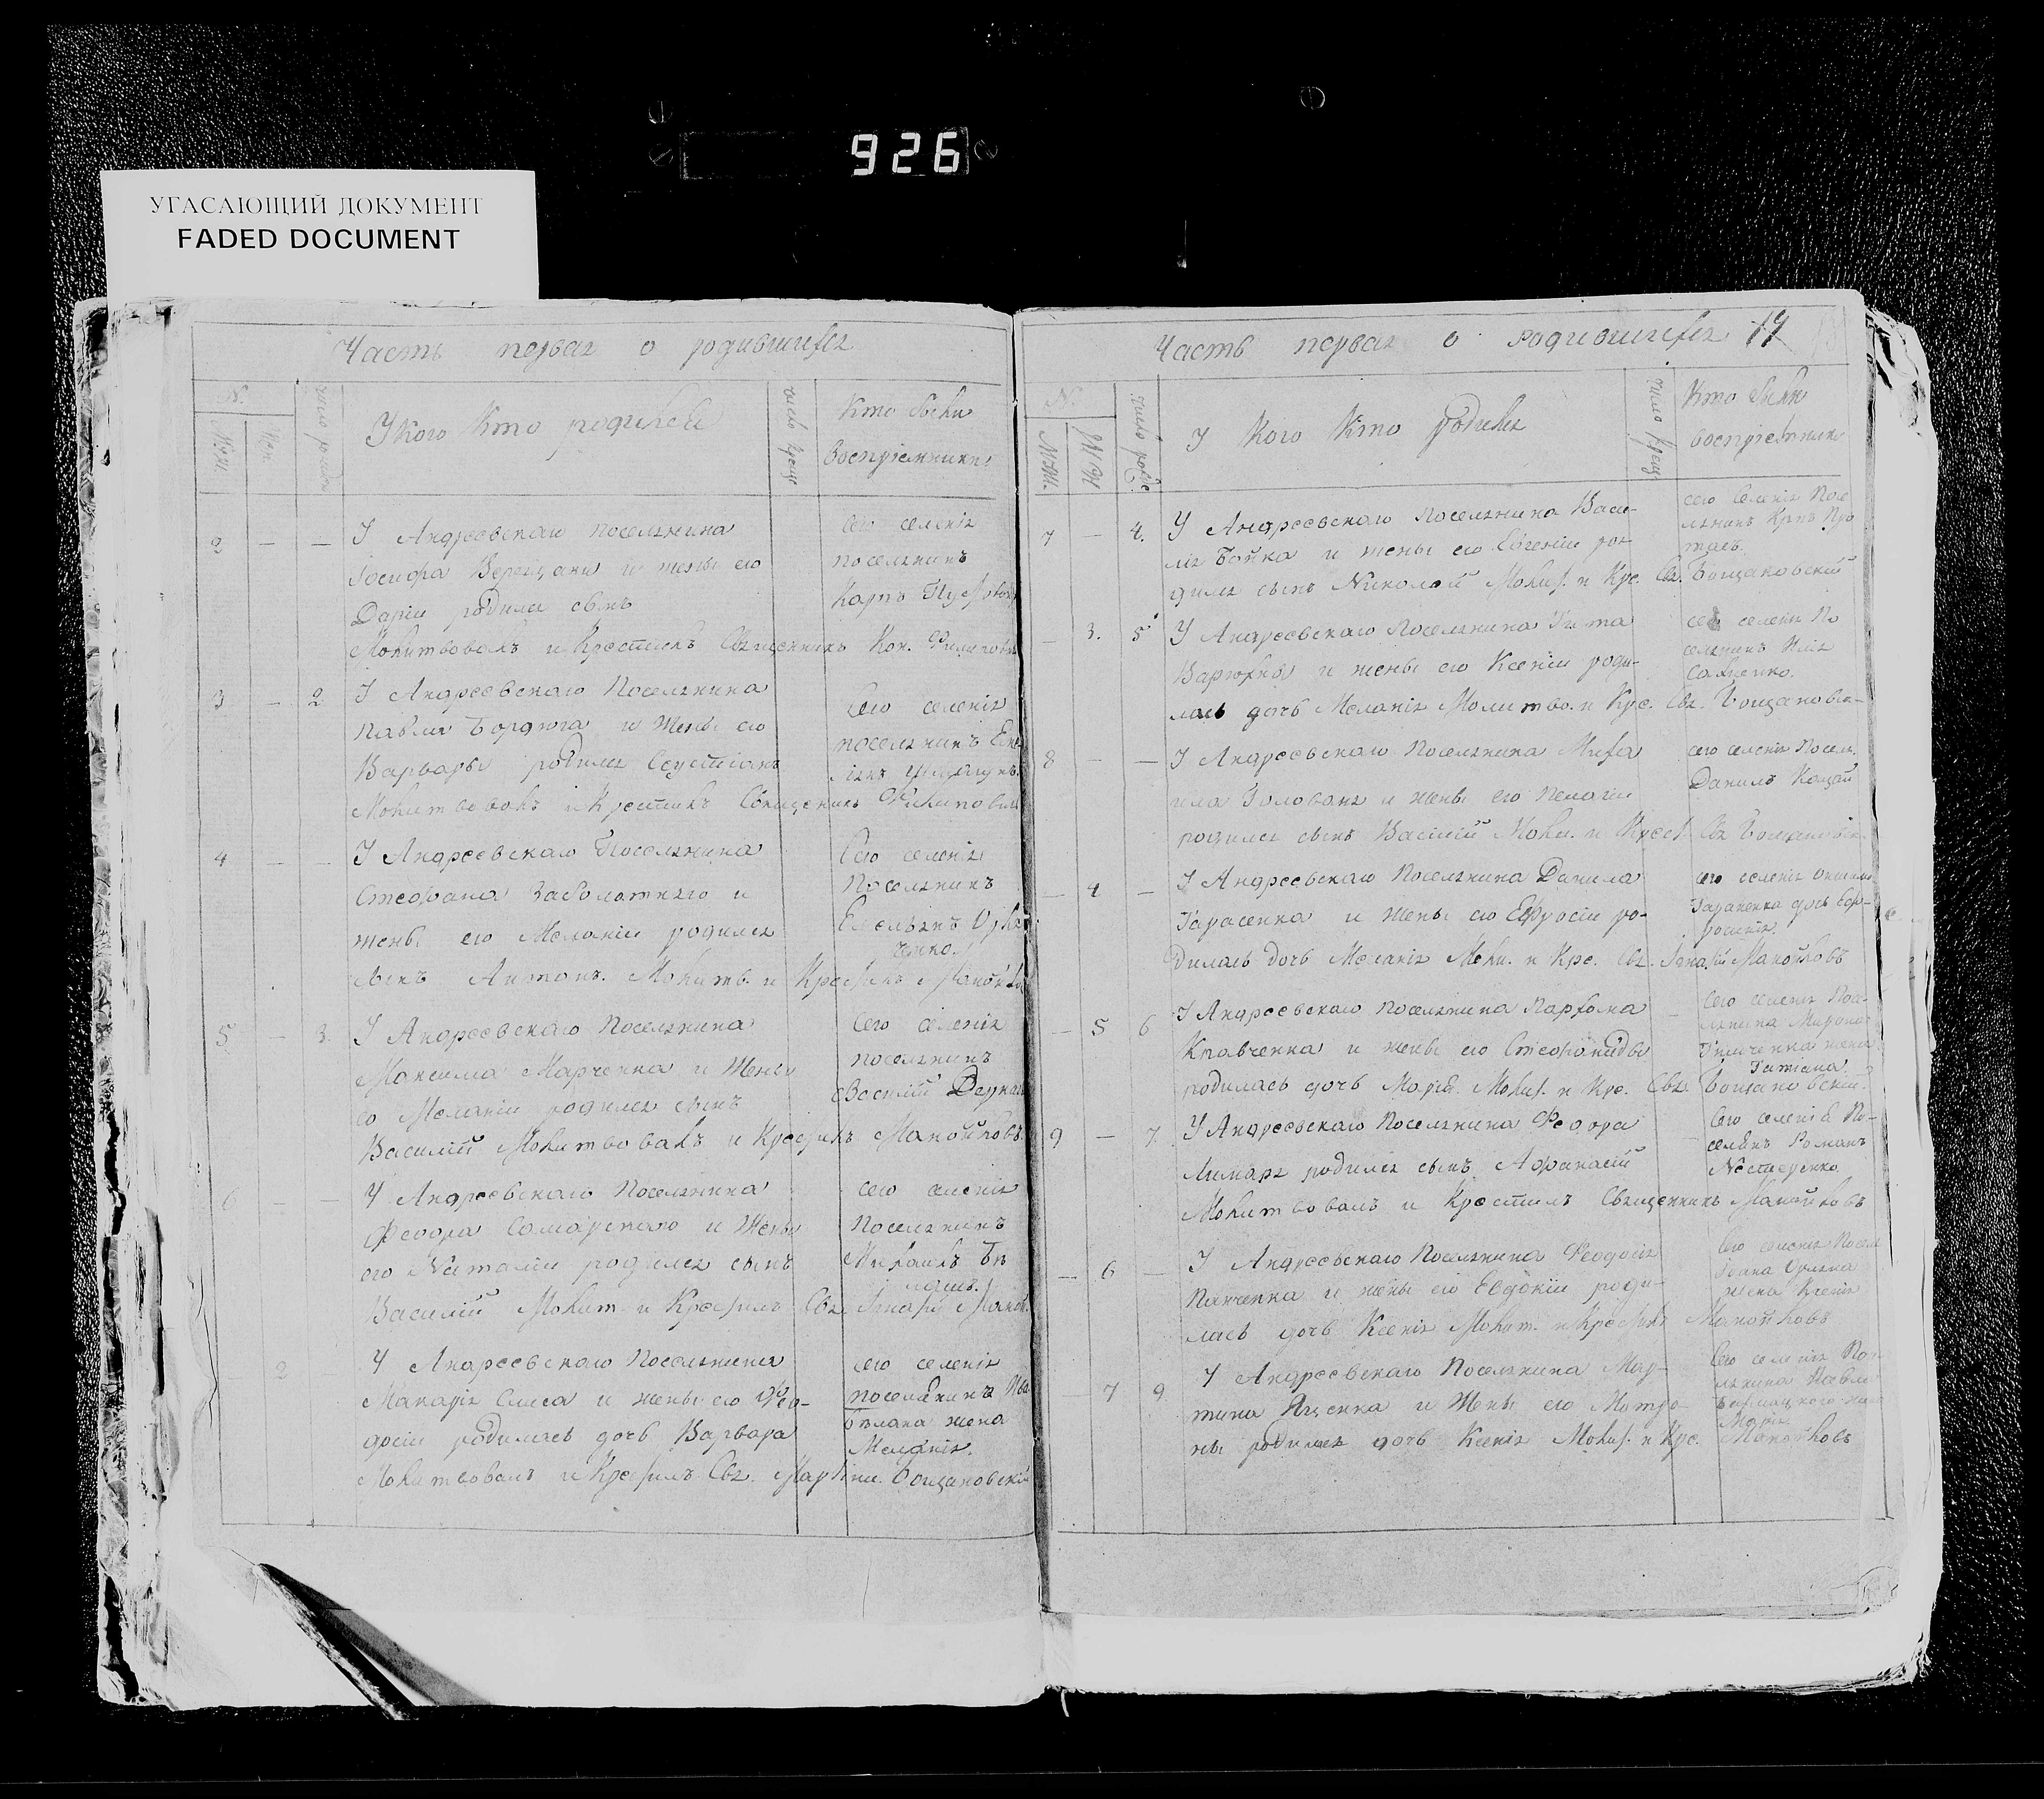 926
УГАСАЮЩИЙ ДОКУМЕНТ
FADED DOCUMENT
Часть первая о родившихся
№.
Муж.
Жен.
число рожден
У кого кто родился
число крещ
Кто были
воспріемники
2 — —
У Андреевскаго поселянина
Іосифа Верещаки и жены его
Даріи родился сынъ
Молитвовалъ и Крестилъ Священникъ Кон. Филипов
сего селенія
поселянинъ
Карпъ
3 — 2
У Андреевскаго Поселянина
Павла Бордюга и Жены его
Варвары родился
Молитвовалъ и Крестилъ Священикъ Филипови
Сего селенія
поселянинъ
4 — —
У Андреевскаго Поселянина
Стефана Заболотнаго и
жены его Меланіи родился
сынъ Антонъ. Молитв. и Крестилъ Манойло
Сего селенія
Поселянинъ
Емельянъ
5 — 3.
У Андреевскаго Поселянина
Максима Марченка и Жены
его Меланіи родился сынъ
Василій Молитвовалъ и Крестилъ Манойловъ
сего селенія
поселянинъ
Василій Деркач
6 — —
У Андреевскаго Поселянина
Феодора Самарскаго и Жены
его Наталіи родился сынъ
Василій Молит. и Крестилъ Свя. Игнатій Маной
сего селенія
поселянинъ
Михаилъ
2
У Андреевскаго Поселянина
Макарія Слиса и жены его Фео-
досіи родилась дочь Варвара
Молитвовалъ и Крестилъ Свя. Бощановскій
сего селенія
поселянина Ива
Билана жена
Меланія.
Часть первая о родившихся 14
№.
Муж.
число рожде
У Кого Кто родился
число крещ
Кто были
воспріемники
7 — 4.
У Андреевскаго Поселянина Васи-
лія Бойка и жены его Евгеніи ро-
дился сынъ Николай Молит. и Кре. Свя. Бощановскій
сего Селенія Посе
лянинъ Карпъ Про
тасъ.
— 3. 5
У Андреевскаго Поселянина Тита
и жены его Ксеніи роди-
лась дочь Меланія Молитво. и Кре. Свя. Бощановск-
сего селенія По
селянинъ Илія
Савченко.
8 — —
У Андреевскаго Поселянина Миха
ила Голована и жены его Пелагіи
родился сынъ Василій Моли. и Крест Свя Бощановск
сего селенія Посел.
Данилъ Кацай
— 4 —
У Андреевскаго Поселянина Данила
Тарасенка и Жены его Ефросіи ро-
дилась дочь Меланія Моли. и Кре. Свя. Игнатій Манойловъ
сего селенія
дочь Евф-
росинія.
— 5 6
У Андреевскаго Поселянина Пархома
Кравченка и жены его Стефониды
родилась дочь Марія. Молит. и Кре. Свя. Бощановскій.
Сего селенія Посе-
лянина Мирона
жена
Татіана
9 — 7.
У Андреевскаго Поселянина Феодора
Лимаря родился сынъ Афанасій
Молитвовалъ и Крестилъ Священникъ Манойловъ
Сего селенія По-
селянъ Романъ
Нестеренко.
— 6 —
У Андреевскаго Поселянина Феодосія
Панченка и жены его Евдокіи роди-
лась дочь Ксенія Молит. и Крестилъ Манойловъ
Сего селенія Посел
Іоана
жена Ксенія
— 7 9
У Андреевскаго Поселянина Мар-
тина Яценка и Жены его Матро-
ны родилась дочь Ксенія Молит. и Кре. Манойловъ
Сего селенія По
лянина Павла
Марія